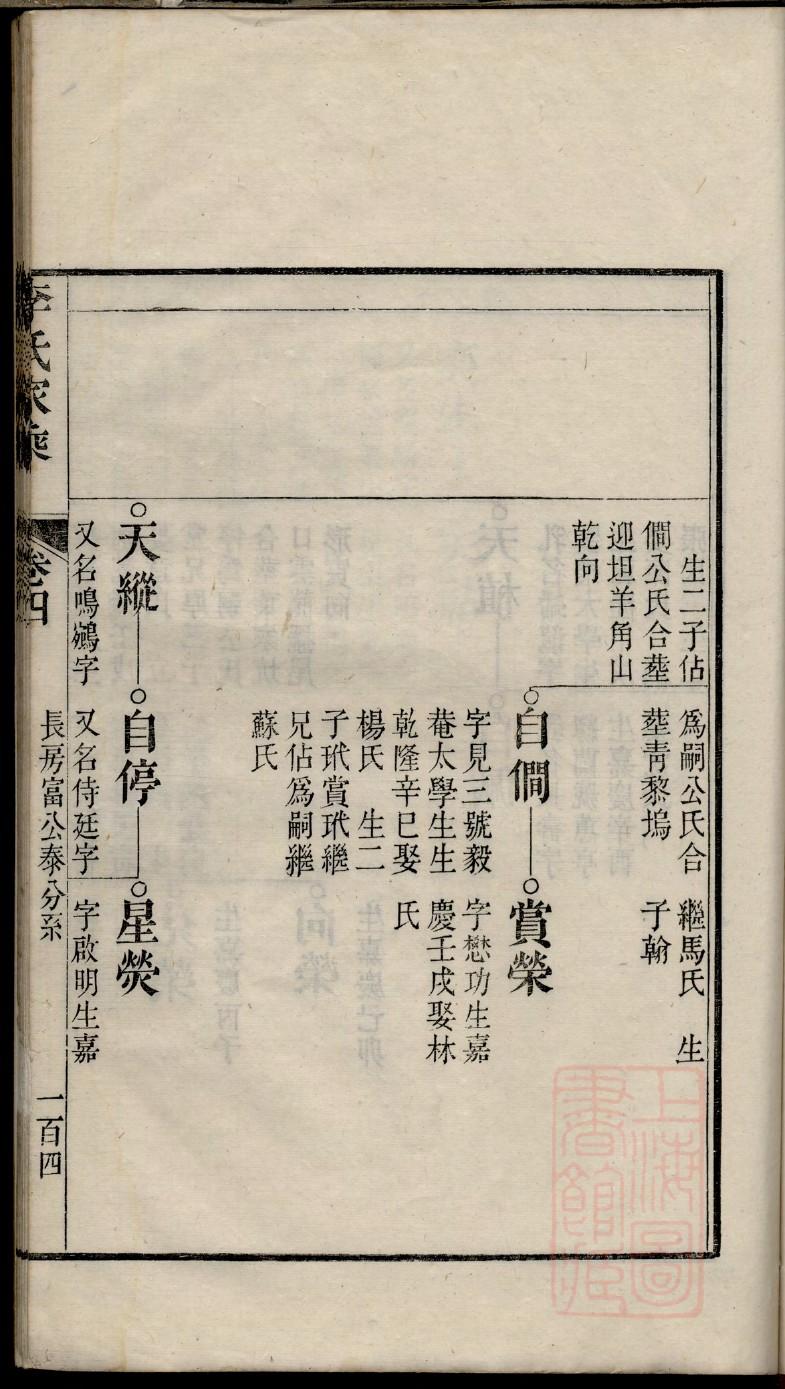 生二子佔
僴公氏合塟
迎坦羊角山
乾向
爲嗣公氏合
塟靑黎塢
繼馬氏　生
子翰
自僴
字見三號毅
菴太學生生
乾隆辛巳娶
楊氏　生二
子玳賞玳繼
兄佔爲嗣繼
蘇氏
賞榮
字懋功生嘉
慶壬戌娶林
氏
天縱
又名鳴鵷字
自停
又名侍廷字
星熒
字啟明生嘉
李氏家乘
卷四
長房富公泰分系
一百四
上海圖
書館藏